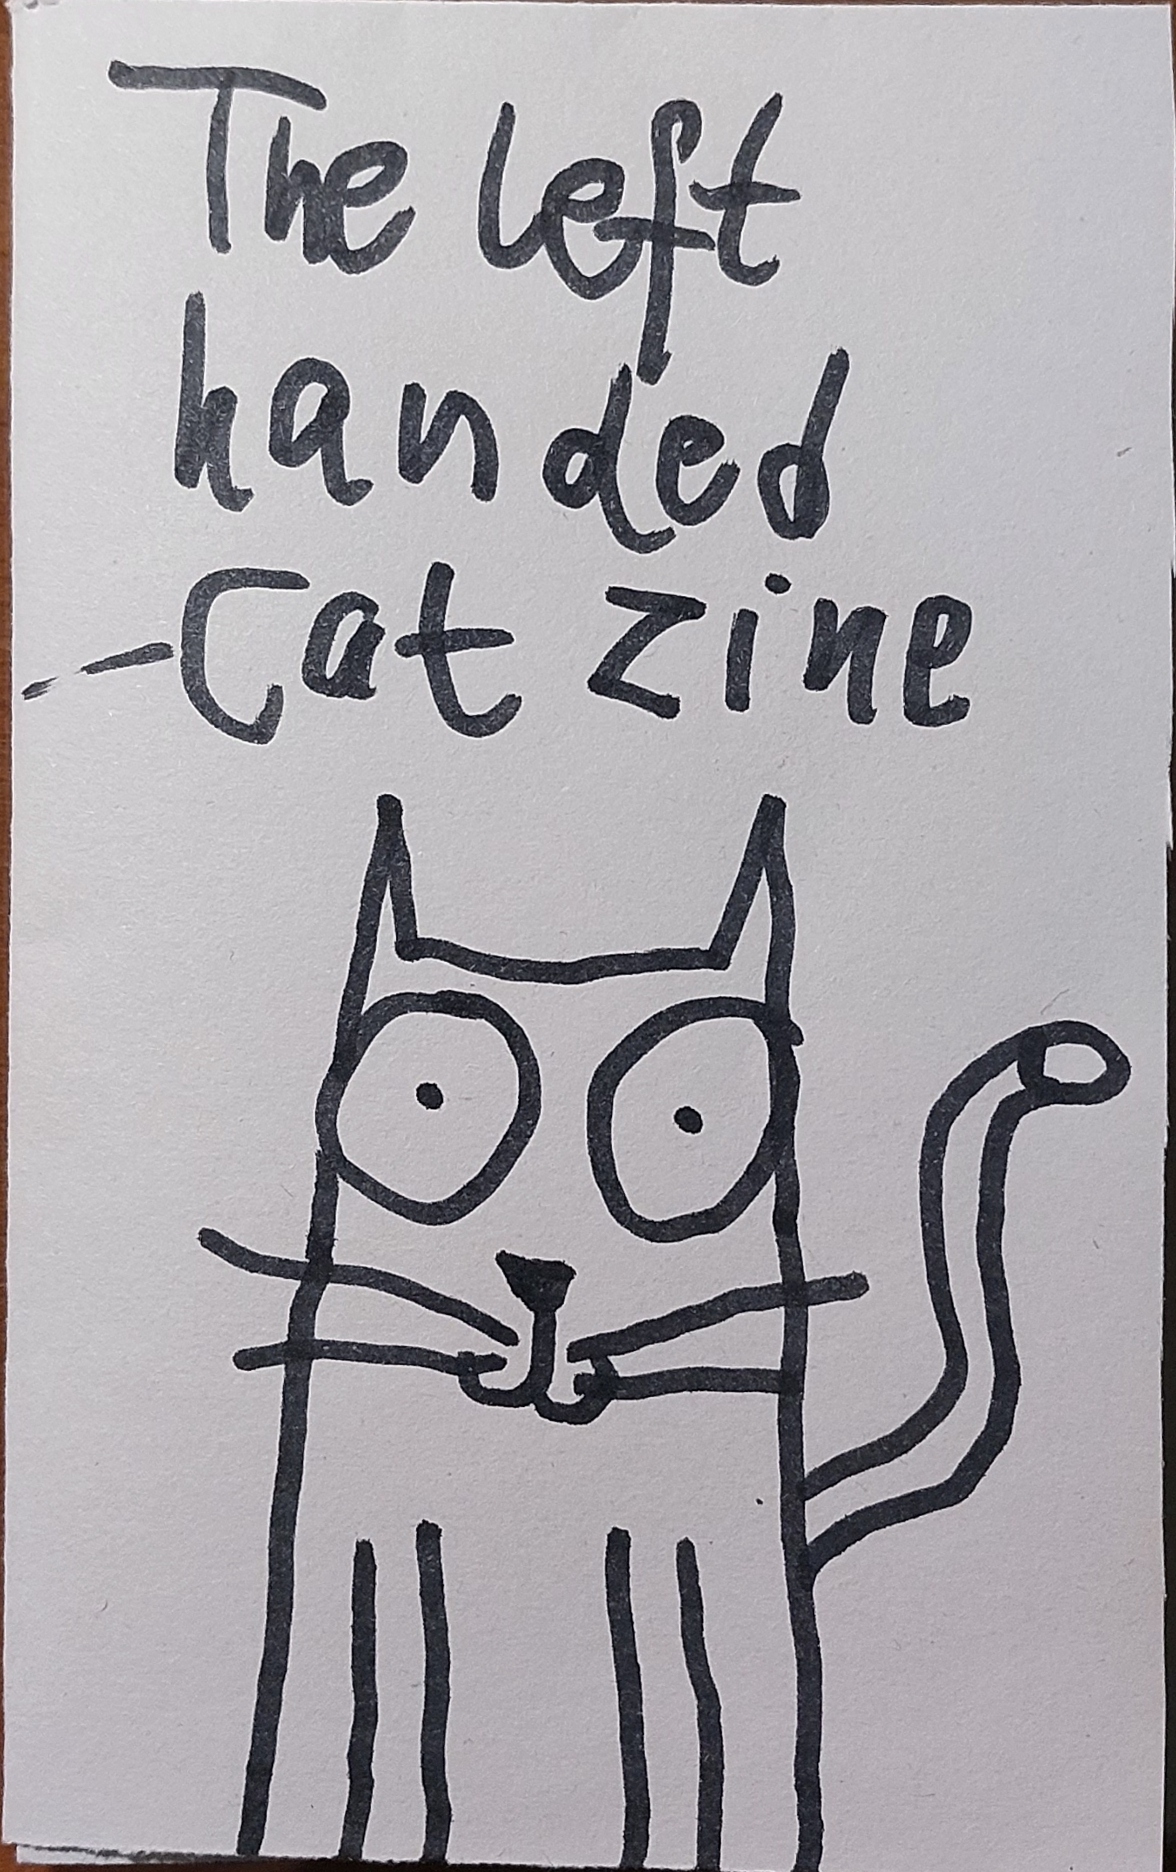 The left
handed
Cat zine